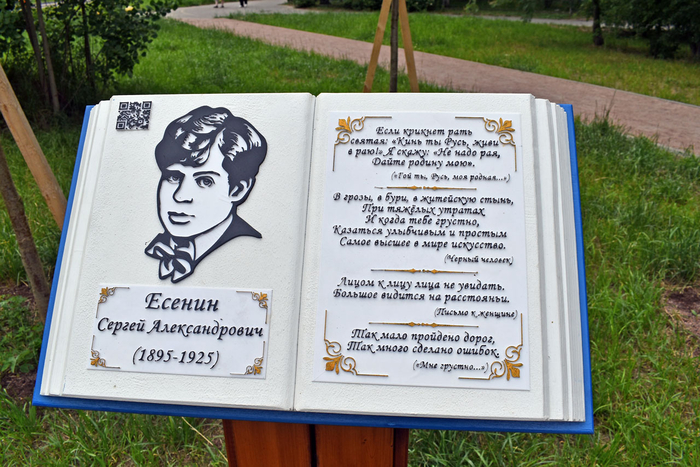 Есенин
Сергей Александрович
(1895-1925)
Если крикнет рать
святая: «Кинь ты Русь, живи
в раю!» Я скажу: «Не надо рая,
Дайте родину мою».
(«Гой ты, Русь, моя родная...»)
В грозы, в бури, в житейскую стынь,
При тяжёлых утратах
И когда тебе грустно,
Казаться улыбчивым и простым
Самое высшее в мире искусство.
(Черный человек)
Лицом к лицу лица не увидать.
Большое видится на расстояньи.
(Письмо к женщине)
Так мало пройдено дорог,
Так много сделано ошибок.
(«Мне грустно...»)